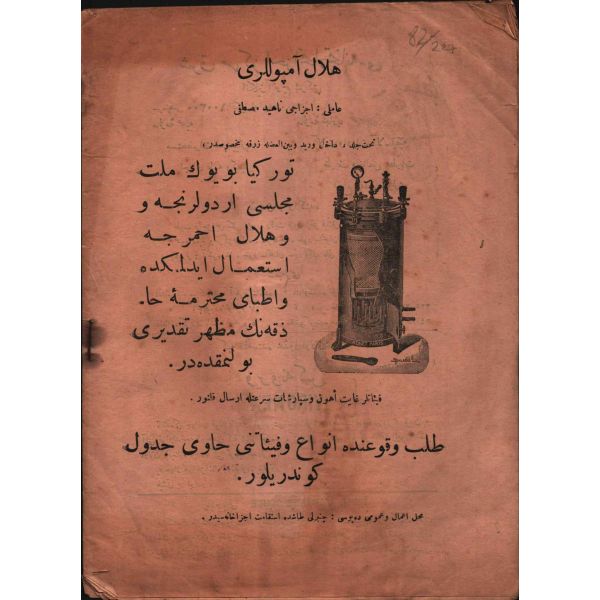 هلال آمپوللری
عاملی : اجزاجی ناهید مصطفی
تحت جلد ، داخل ورید وبین العضله زرقه مخصوصدر
تورکیا بویوك ملت
مجلسی اردولرنجه و
وهلال احمرجه
استعمال ایدلمکده
واطبای محترمۀ حا۔
ذقه‌نك مظهر تقدیری
بولنمقده‌در.
فیئاتلر غایت اهون وسپارشات سرعتله ارسال قلنور .
طلب وقوعنده انواع وفیئاتنی حاوی جدول
کوندریلور.
محل اعمال وعمومی ده‌پوسی : چنبرلی طاشده استقامت اجزاخانه‌سیدر .